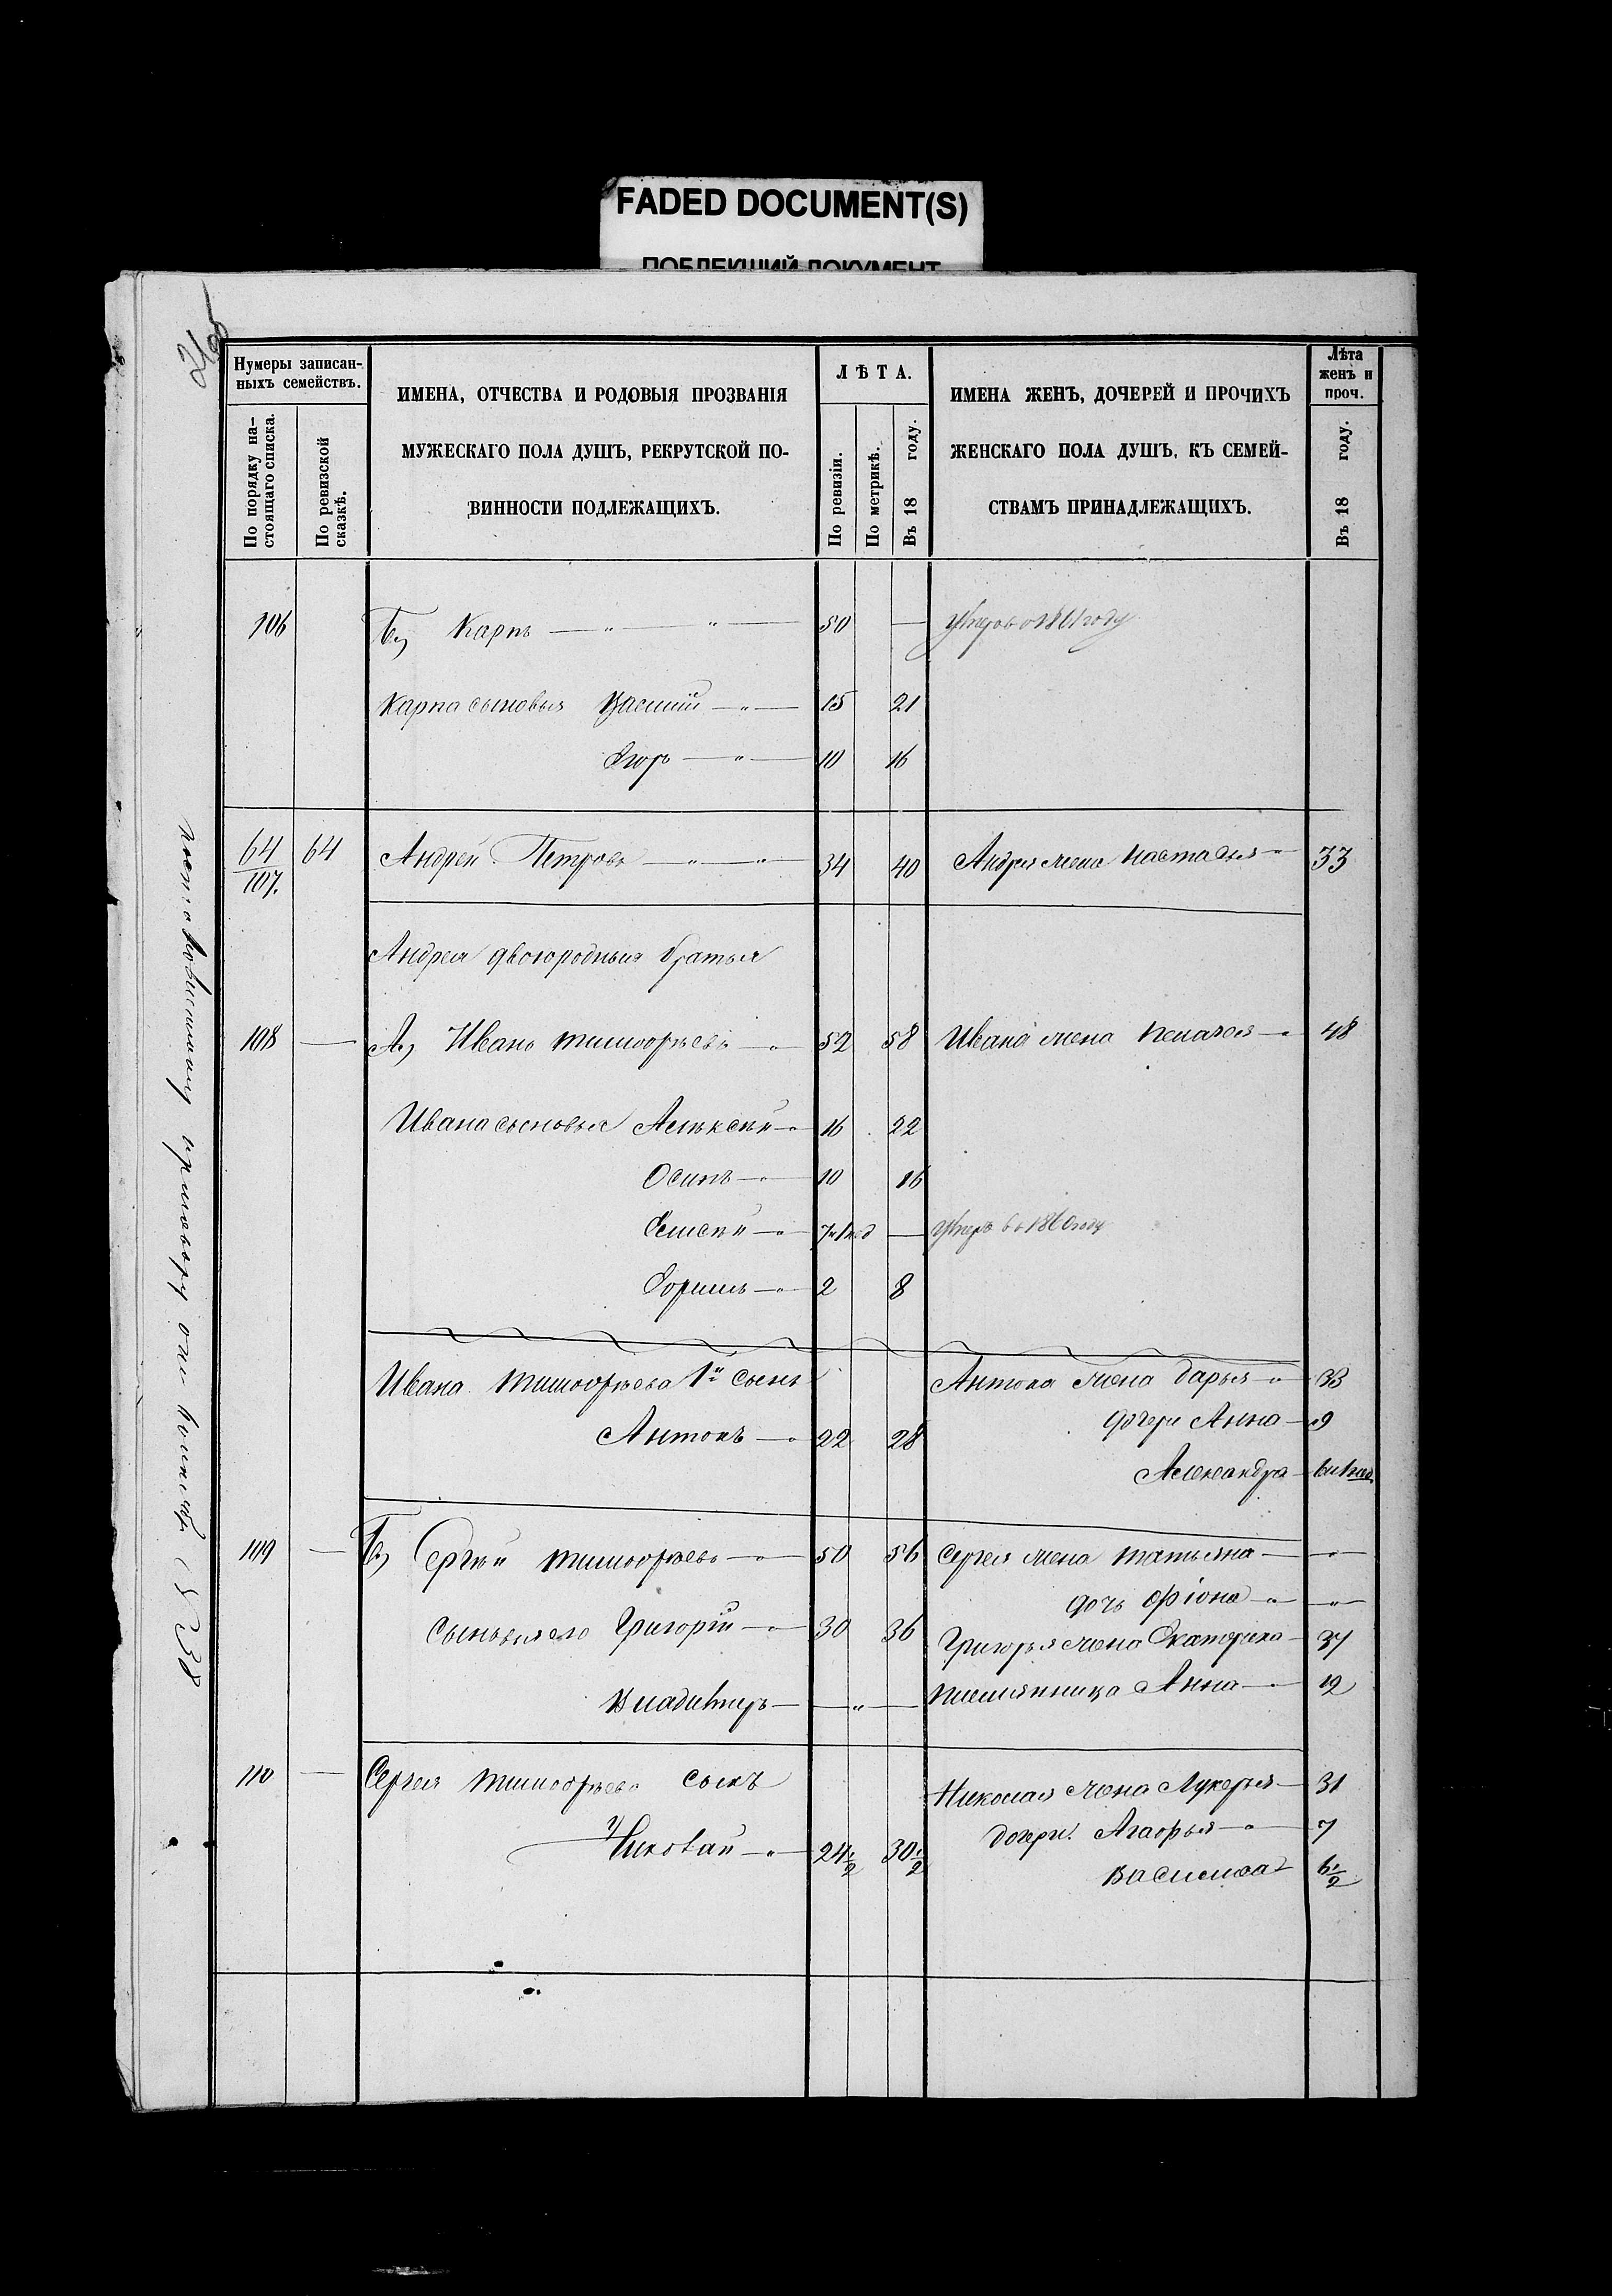 FADED DOCUMENT(S)
ПОБЛЕКШИЙ ДОКУМЕНТ
Нумеры записан-
ныхъ семействъ.
По порядку на-
стоящаго списка.
По ревизской
сказкѣ.
ИМЕНА, ОТЧЕСТВА И РОДОВЫЯ ПРОЗВАНІЯ
МУЖЕСКАГО ПОЛА ДУШЪ, РЕКРУТСКОЙ ПО-
ВИННОСТИ ПОДЛЕЖАЩИХЪ.
ЛѢТА.
По ревизіи.
По метрикѣ.
Въ 18 году.
ИМЕНА ЖЕНЪ, ДОЧЕРЕЙ И ПРОЧИХЪ
ЖЕНСКАГО ПОЛА ДУШЪ, КЪ СЕМЕЙ-
СТВАМЪ ПРИНАДЛЕЖАЩИХЪ.
Лѣта
женъ и
проч.
Въ 18 году.
106 Б) Карпъ — " — " — 50 — умеръ в 1861 году
Карпа сыновья Василій — " — 15 21
Егоръ — " — 10 16
64/107. 64 Андрей Петровъ — " — " 34 40 Андрея жена Настасья — " 33
Андрея двоюродныя братья
108 — А) Иванъ Тимофѣевъ — " 52 58 Ивана жена Пелагея — " 48
Ивана сыновья Алѣксѣй — " 16 22
Осипъ — " — 10 16
Елисѣй — " — 7 и 1 нед — умеръ въ 1860 году
2 8
Ивана Тимофѣева 1й сынъ Антона жена Дарья — " 33
Антонъ — " 22 28 дочери Анна — 9
Александра — нед.
109 — Б) Сергѣй Тимофѣевъ — " — 50 56 Сергея жена Татьяна — — " —
дочь — " — " —
сыновья его Григорій — " 30 36 Григорья жена Екатерина — 37
Владимиръ — — " — племянница Анна — 12
110 — Сергея Тимофѣева сынъ Николая жена Лукерья — 31
Николай — " — 24½ 30½ дочери. Агафья — " — 7
Василиса — 6½